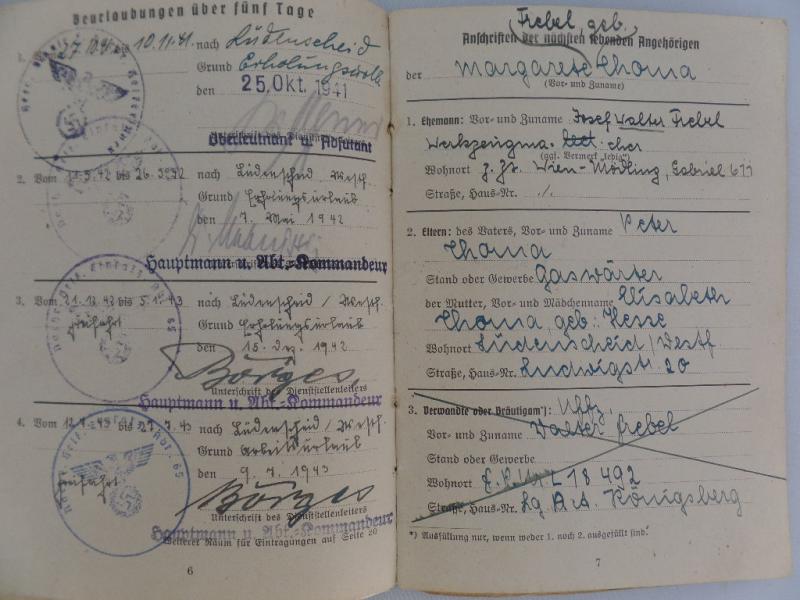 Beurlaubungen über fünf Tage
1. bis 10.11.41 nach Lüdenscheid
Grund Erholungsurl.
den 25. Okt. 1941
Unterschrift des
Oberleutnant u. Adjutant
2. Vom bis 26.5.42 nach Lüdenscheid, Westf.
Grund Erholungsurlaub
den 7. Mai 1942
Hauptmann u. Abt.-Kommandeur
3. Vom 21.12.42 bis 5.1.43 nach Lüdenscheid / Westf.
Grund Erholungsurlaub
den 15. Dez. 1942
Börges
Unterschrift des Dienststellenleiters
Hauptmann u. Abt.-Kommandeur
4. Vom 12.7.43 bis 27.7.43 nach Lüdenscheid / Westf.
Grund Arbeitsurlaub
den 9.7.1943
Börges
Unterschrift des Dienststellenleiters
Hauptmann u. Abt.-Kommandeur
Weiterer Raum für Eintragungen auf Seite 20
6
Frebel, geb.
Anschriften der nächsten lebenden Angehörigen
der Margarete Thoma
(Vor- und Zuname)
1. Ehemann: Vor- und Zuname Josef Walter Frebel
Werkzeugma- cher
(ggf. Vermerk „ledig")
Wohnort z. Zt. Wien-Mödling, Gabriel
Straße, Haus-Nr. ./.
2. Eltern: des Vaters, Vor- und Zuname Peter
Thoma
Stand oder Gewerbe Gaswärter
der Mutter, Vor- und Mädchenname Elisabeth
Thoma, geb.: Hesse
Wohnort Lüdenscheid / Westf.
Straße, Haus-Nr. Ludwigstr. 20
3. Verwandte oder Bräutigam*): Uffz.
Vor- und Zuname Walter Frebel
Stand oder Gewerbe
Wohnort L 18 492
Straße, Haus-Nr. Lg. A. Königsberg
*) Ausfüllung nur, wenn weder 1. noch 2. ausgefüllt sind.
7